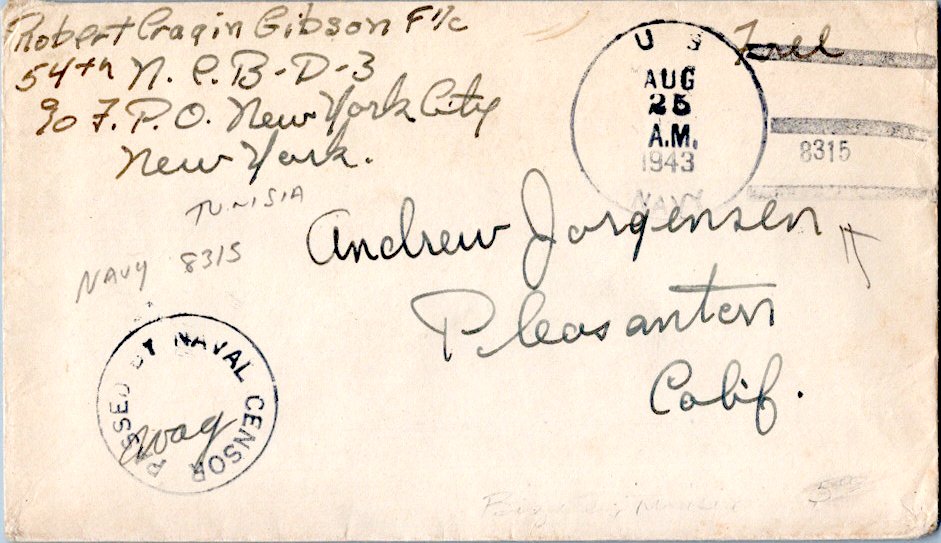 Robert Cragin Gibson F 1/c
54th N. C. B - D-3
c/o F. P. O. New York City
New York.
Free
U S
AUG
25
A.M.
1943
NAVY
8315
TUNISIA
NAVY 8315
Andrew Jorgensen
Pleasanton
Calif.
PASSED BY NAVAL CENSOR